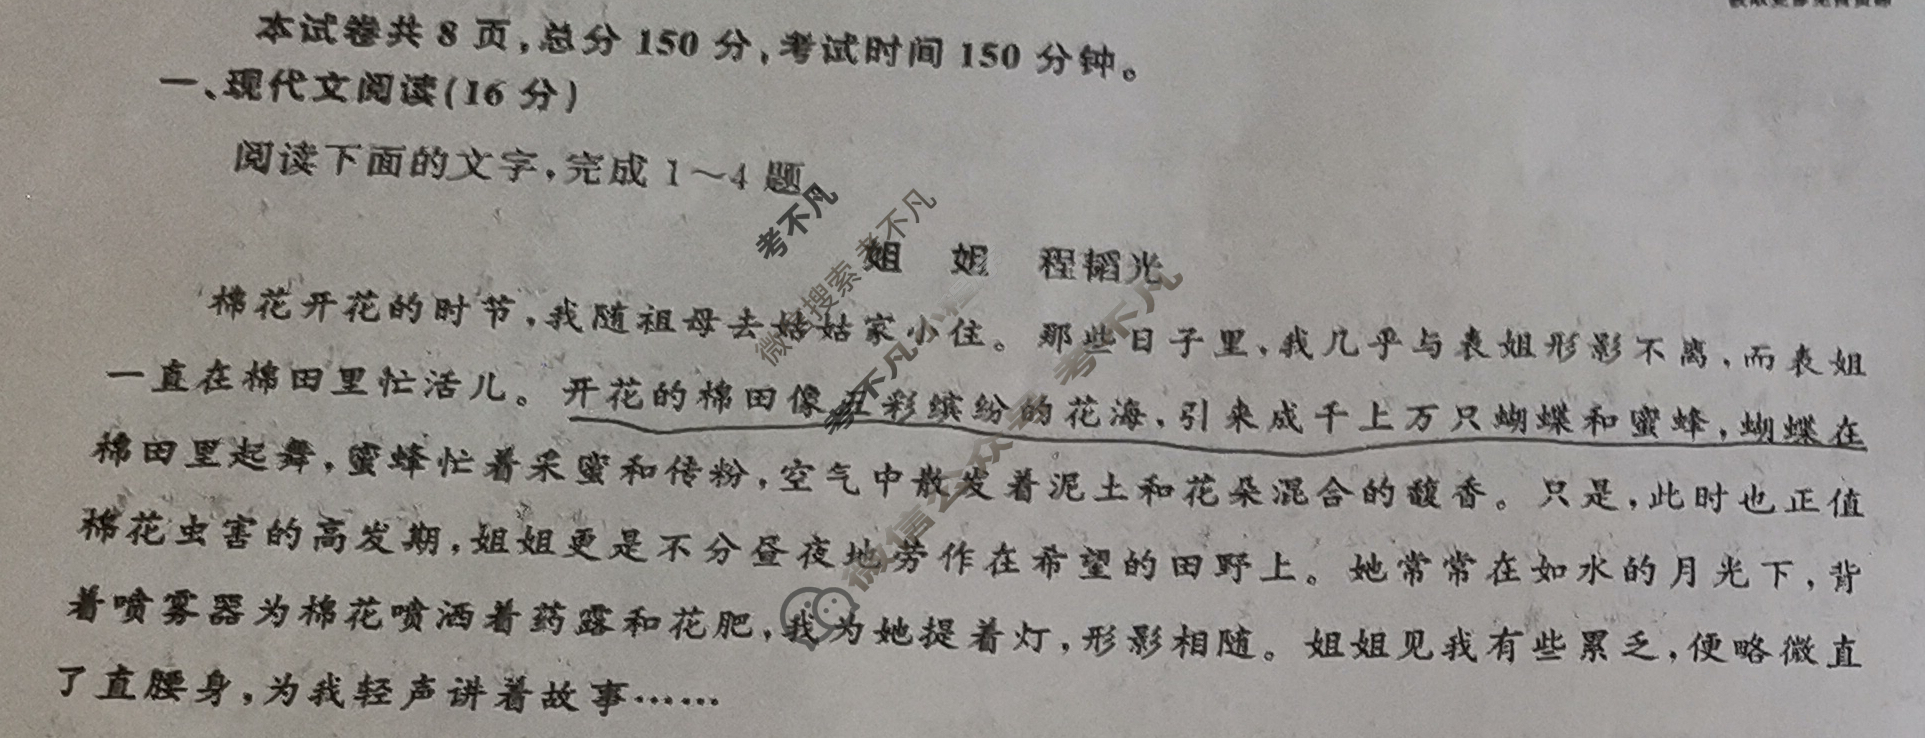 本试卷共8页，总分150分，考试时间150分钟。
一、现代文阅读(16分)
阅读下面的文字，完成1～4题
姐 姐 程韬光
棉花开花的时节，我随祖母去姑姑家小住。那些日子里，我几乎与表姐形影不离，而表姐
一直在棉田里忙活儿。开花的棉田像五彩缤纷的花海，引来成千上万只蝴蝶和蜜蜂，蝴蝶在
棉田里起舞，蜜蜂忙着采蜜和传粉，空气中散发着泥土和花朵混合的馥香。只是，此时也正值
棉花虫害的高发期，姐姐更是不分昼夜地劳作在希望的田野上。她常常在如水的月光下，背
着喷雾器为棉花喷洒着药露和花肥，我为她提着灯，形影相随。姐姐见我有些累乏，便略微直
了直腰身，为我轻声讲着故事……
考不凡
微信搜索考不凡
微信公众号考不凡
考不凡